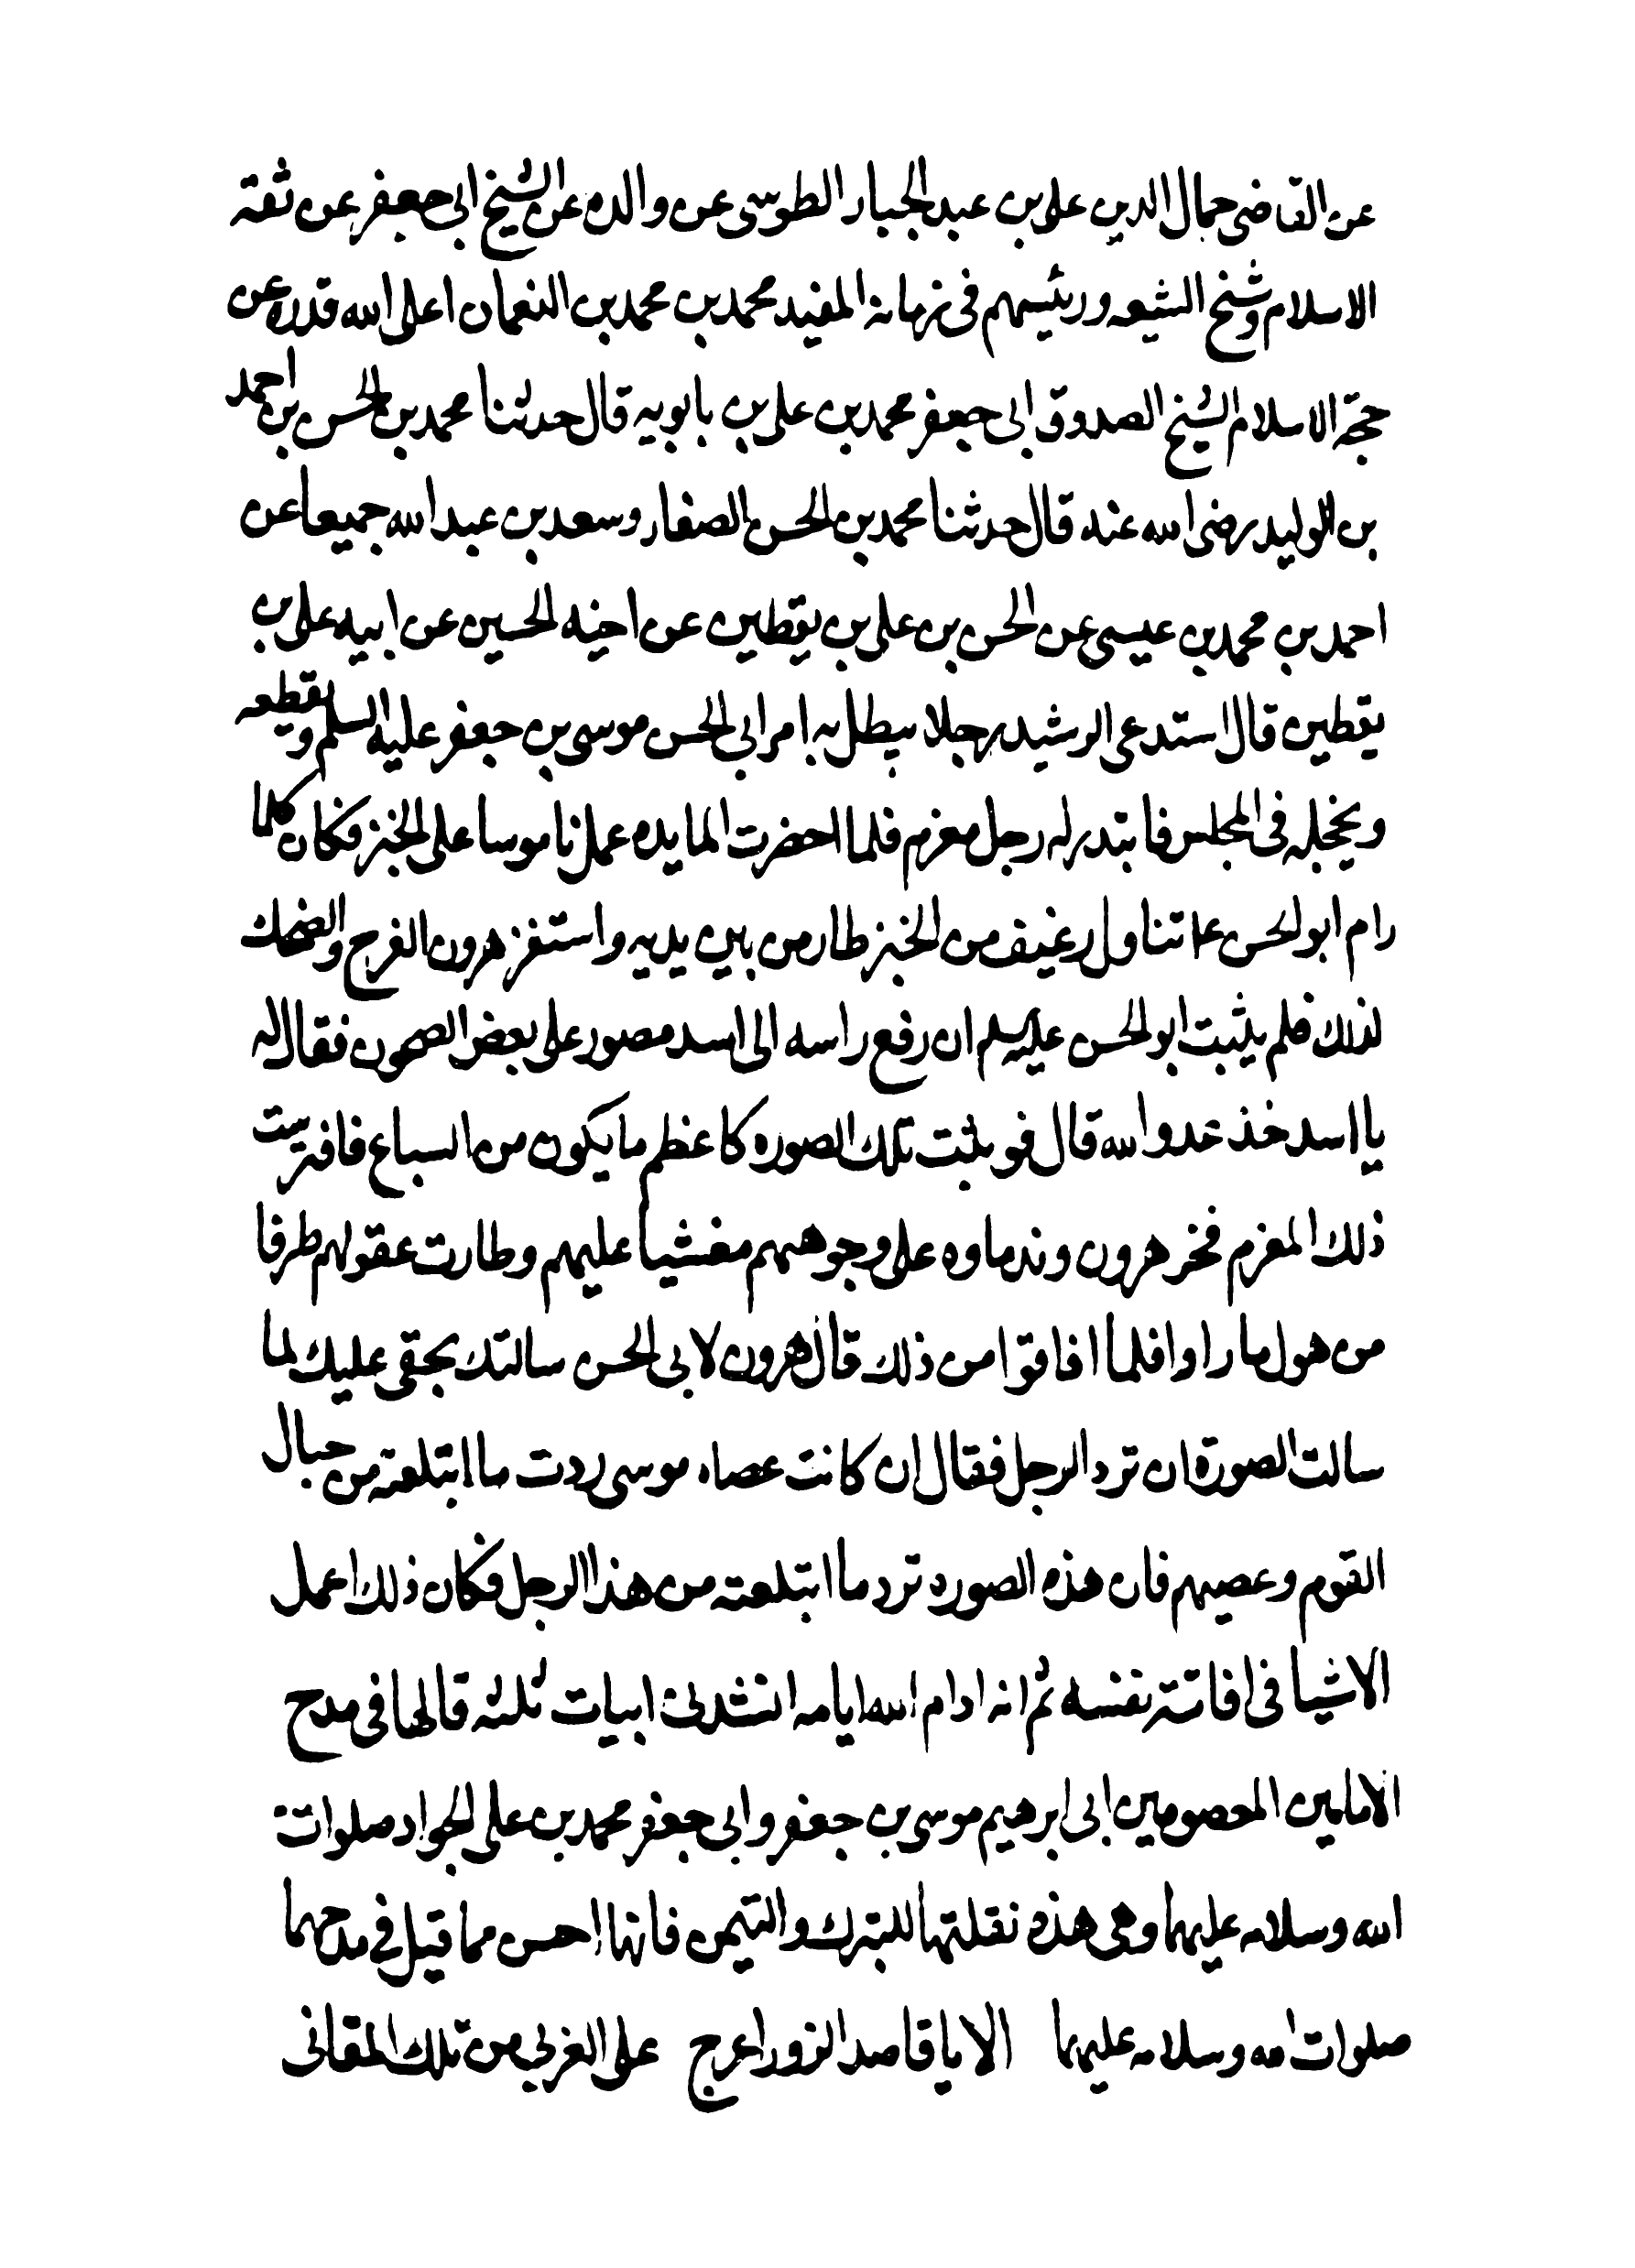 عن القاضى جمال الدين على بن عبد الجبار الطوسى عن والده عن الشيخ ابى جعفر عن ثقة
الاسلام وشيخ الشيعه ورئيسهم فى زمانه المفيد محمد بن محمد بن النعمان اعلى الله قدره عن
حجة الاسلام الشيخ الصدوق ابى جعفر محمد بن على بن بابويه قال حدثنا محمد بن الحسن بن احمد
بن الوليد رضى الله عنه قال حدثنا محمد بن الحسن الصفار وسعد بن عبد الله جميعا عن
احمد بن محمد بن عيسى عن الحسن بن على بن يقطين عن اخيه الحسين عن ابيه على بن
يقطين قال استدعى الرشيد رجلا يبطل به امر ابى الحسن موسى بن جعفر عليه السلم ويقطعه
ويخجله فى المجلس فابتدر له رجل معزم فلما احضرت المايده عمل ناموسا على الخبز فكان كلما
رام ابو الحسن ع تناول رغيف من الخبز طار من بين يديه واستفز هرون الفرج والضحك
لذلك فلم يلبث ابو الحسن عليه السلم ان رفع راسه الى اسد مصور على بعض الصحون فقال له
يا اسد خذ عدو الله قال فوثبت تلك الصوره كاعظم ما يكون من السباع فافترست
ذلك المعزم فخر هرون وندماوه على وجوههم مغشيا عليهم وطارت عقولهم طرفا
من هول ما راوا فلما افاقوا من ذلك قال هرون لابى الحسن سالتك بحقى عليك لما
سالت الصورة ان ترد الرجل فقال ان كانت عصاه موسى ردت ما ابتلعته من حبال
القوم وعصيهم فان هذه الصوره ترد ما ابتلعته من هذا الرجل فكان ذلك اعمل
الاشيا فى افاتة نفسه ثم انه ادام الله ايامه انشدنى ابيات ثلثه قالها فى مدح
الامامين المعصومين ابى ابرهيم موسى بن جعفر وابى جعفر محمد بن على الجواد صلوات
الله وسلامه عليهما وهى هذه نقلتها للتبرك والتيمن فانها احسن مما قيل فى مدحهما
صلوات الله وسلامه عليهما الا يا قاصد الزورا عرج على الغربى من تلك المقانى